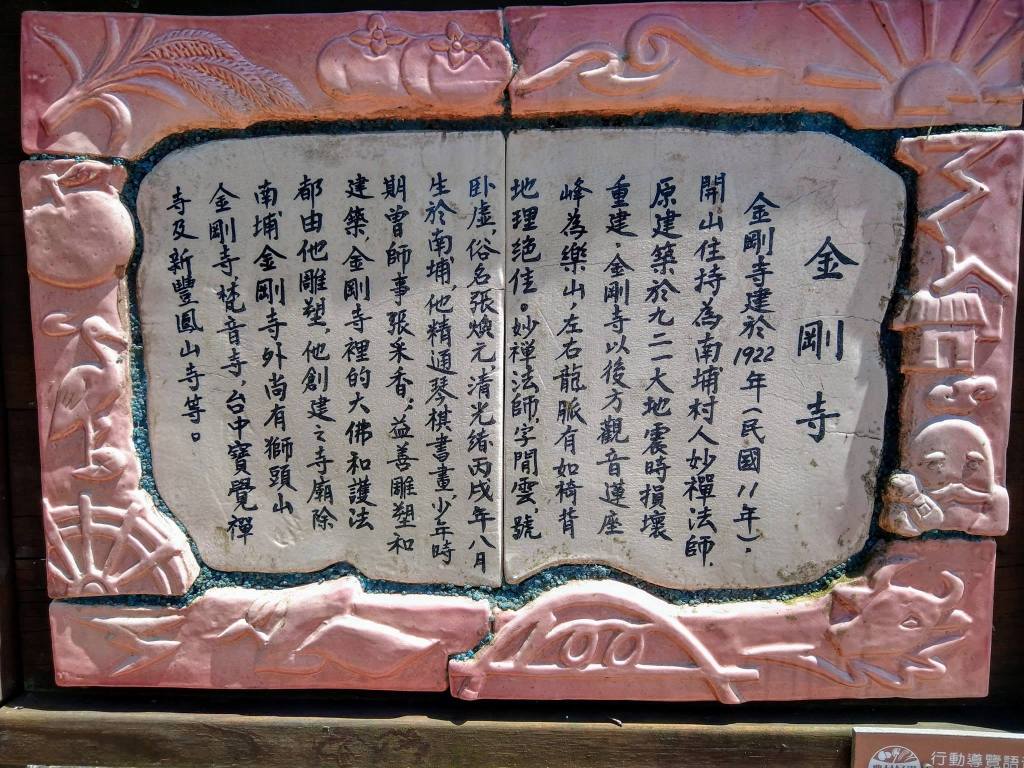 金剛寺
金剛寺建於1922年(民國11年),
開山住持為南埔村人妙禪法師.
原建築於九二一大地震時損壞
重建,金剛寺以後方觀音蓮座
峰為樂山左右龍脈有如椅背
地理絕佳。妙禅法師,字閒雲,號
卧虛,俗名張煥元,清光緒丙戌年八月
生於南埔,他精通琴棋書畫,少年時
期曾師事張采香;益善雕塑和
建築,金剛寺裡的大佛和護法
都由他雕塑,他創建之寺廟除
南埔金剛寺外尚有獅頭山
金剛寺,梵音寺,台中寶覺禪
寺及新豐鳳山寺等。
行動導覽語